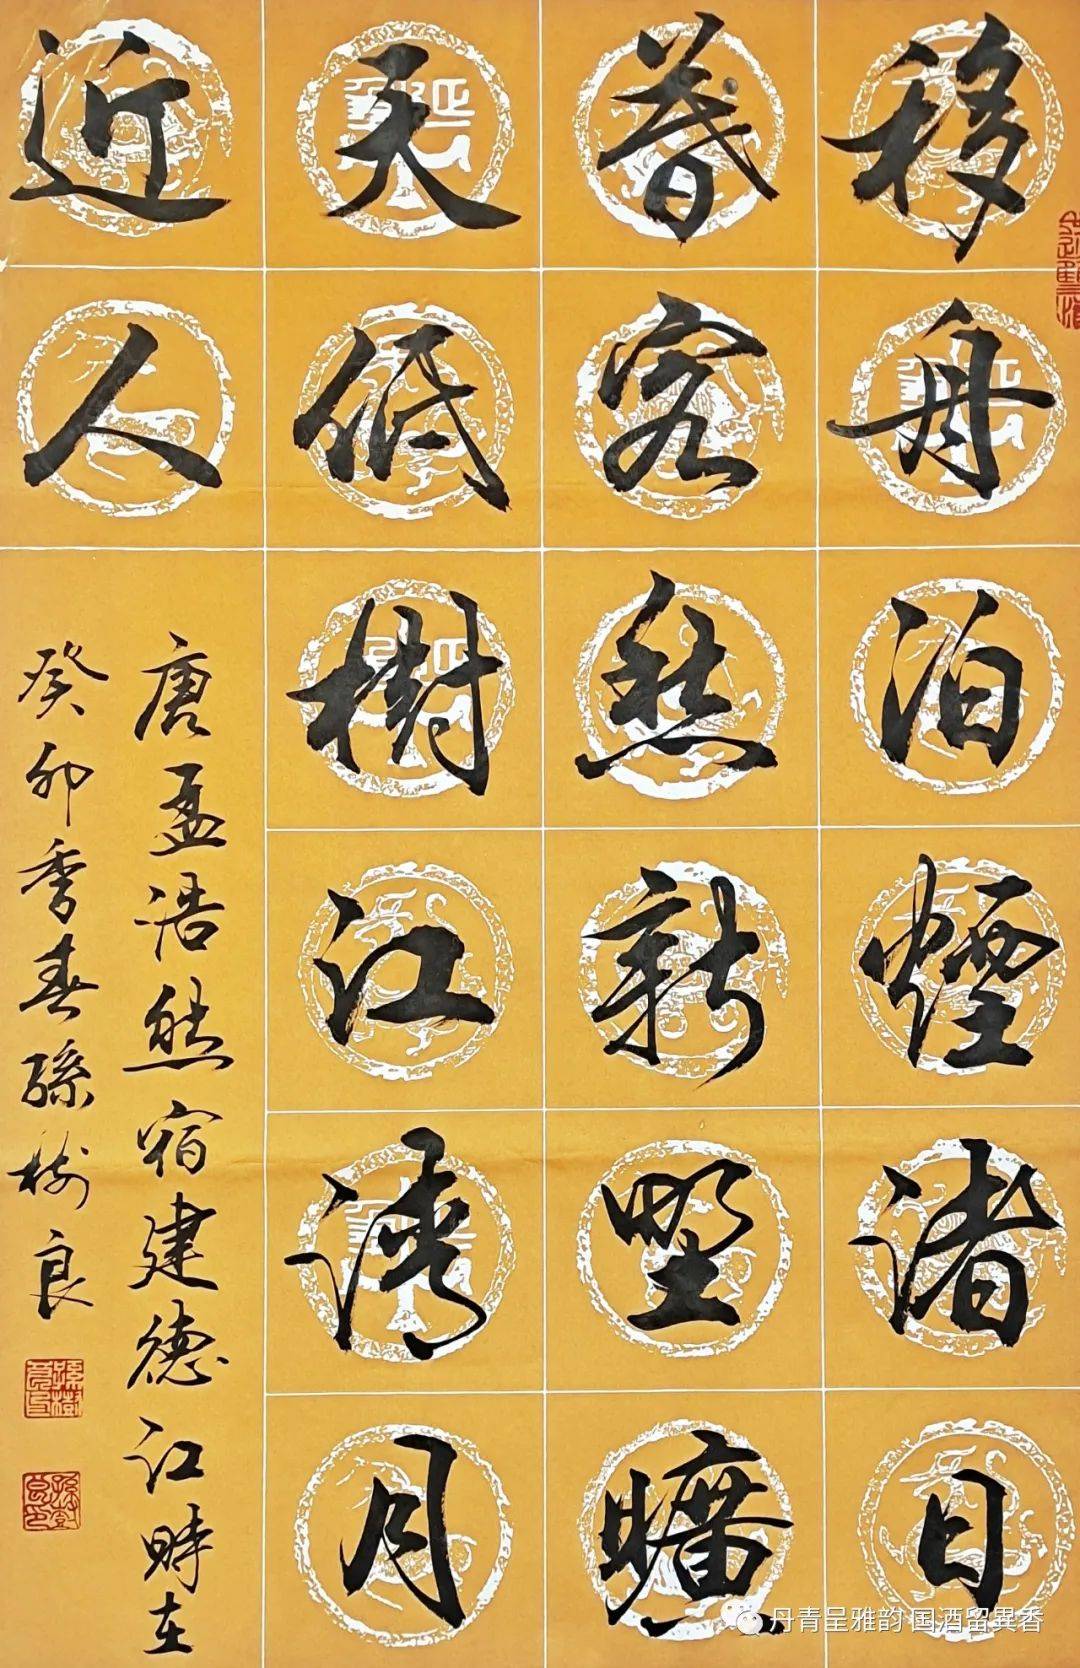 移舟泊煙渚日
暮客愁新野曠
天低樹江清月
近人
唐孟浩然宿建德江時在
癸卯季春孫樹良
丹青呈雅韵 国酒留異香